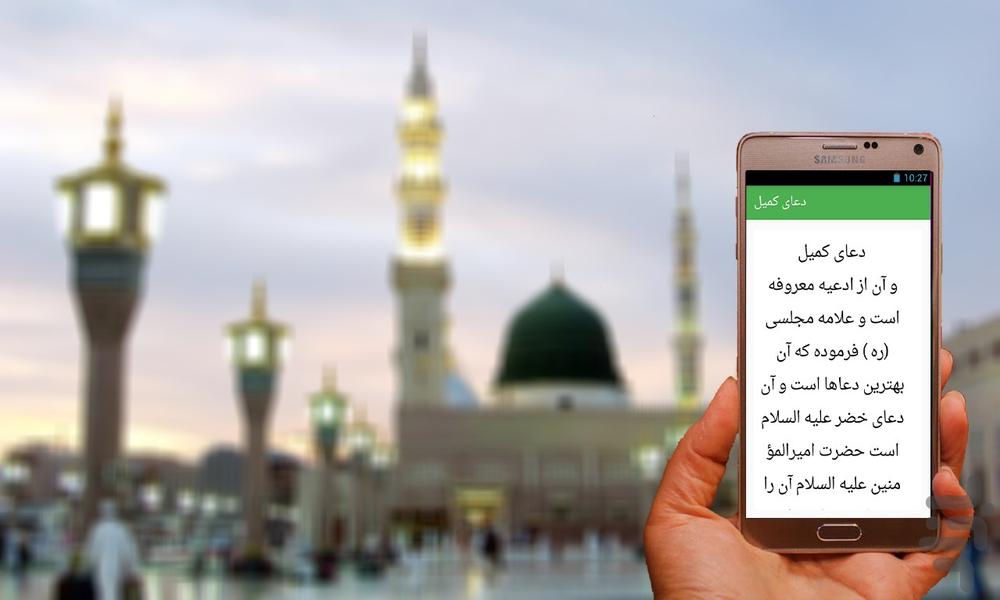 SAMSUNG
10:27
دعای کمیل
دعای کمیل
و آن از ادعیه معروفه
است و علامه مجلسی
(ره ) فرموده که آن
بهترین دعاها است و آن
دعای خضر علیه السلام
است حضرت امیرالمؤ
منین علیه السلام آن را